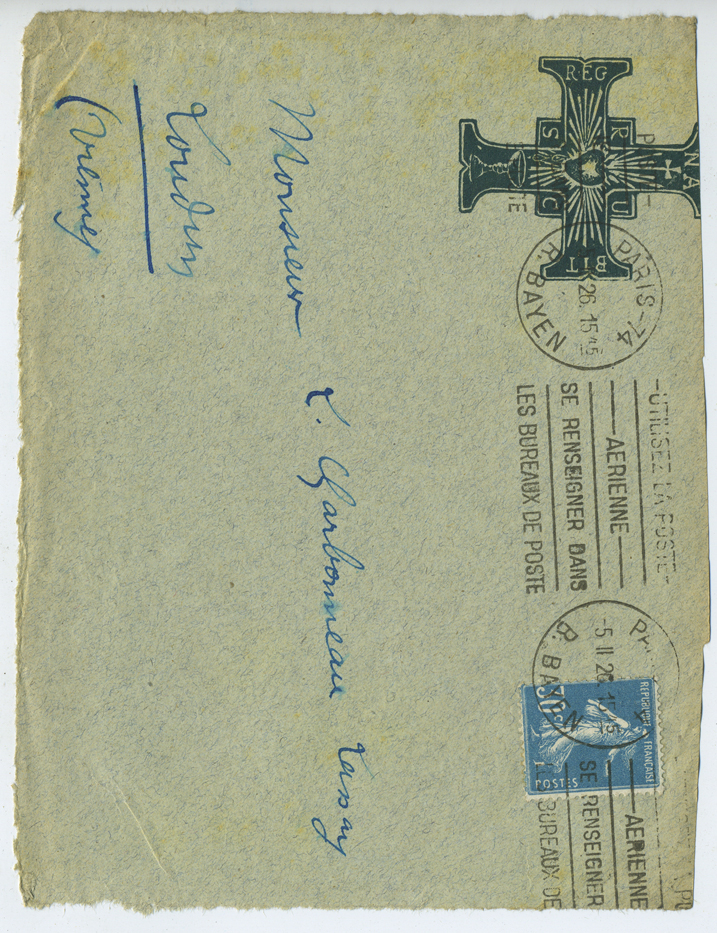 REG
NA
S R
C U
BIT
PARIS-74
26.15 45
R. BAYEN
-UTILISEZ LA POSTE-
AERIENNE
SE RENSEIGNER DANS
LES BUREAUX DE POSTE
-5 II 26.15 45
R. BAYEN
REPUBLIQUE FRANÇAISE
POSTES
AERIENNE
SE RENSEIGNER
BUREAUX DE
Monsieur L. Charbonneau Lassay
Loudun
(Vienne)